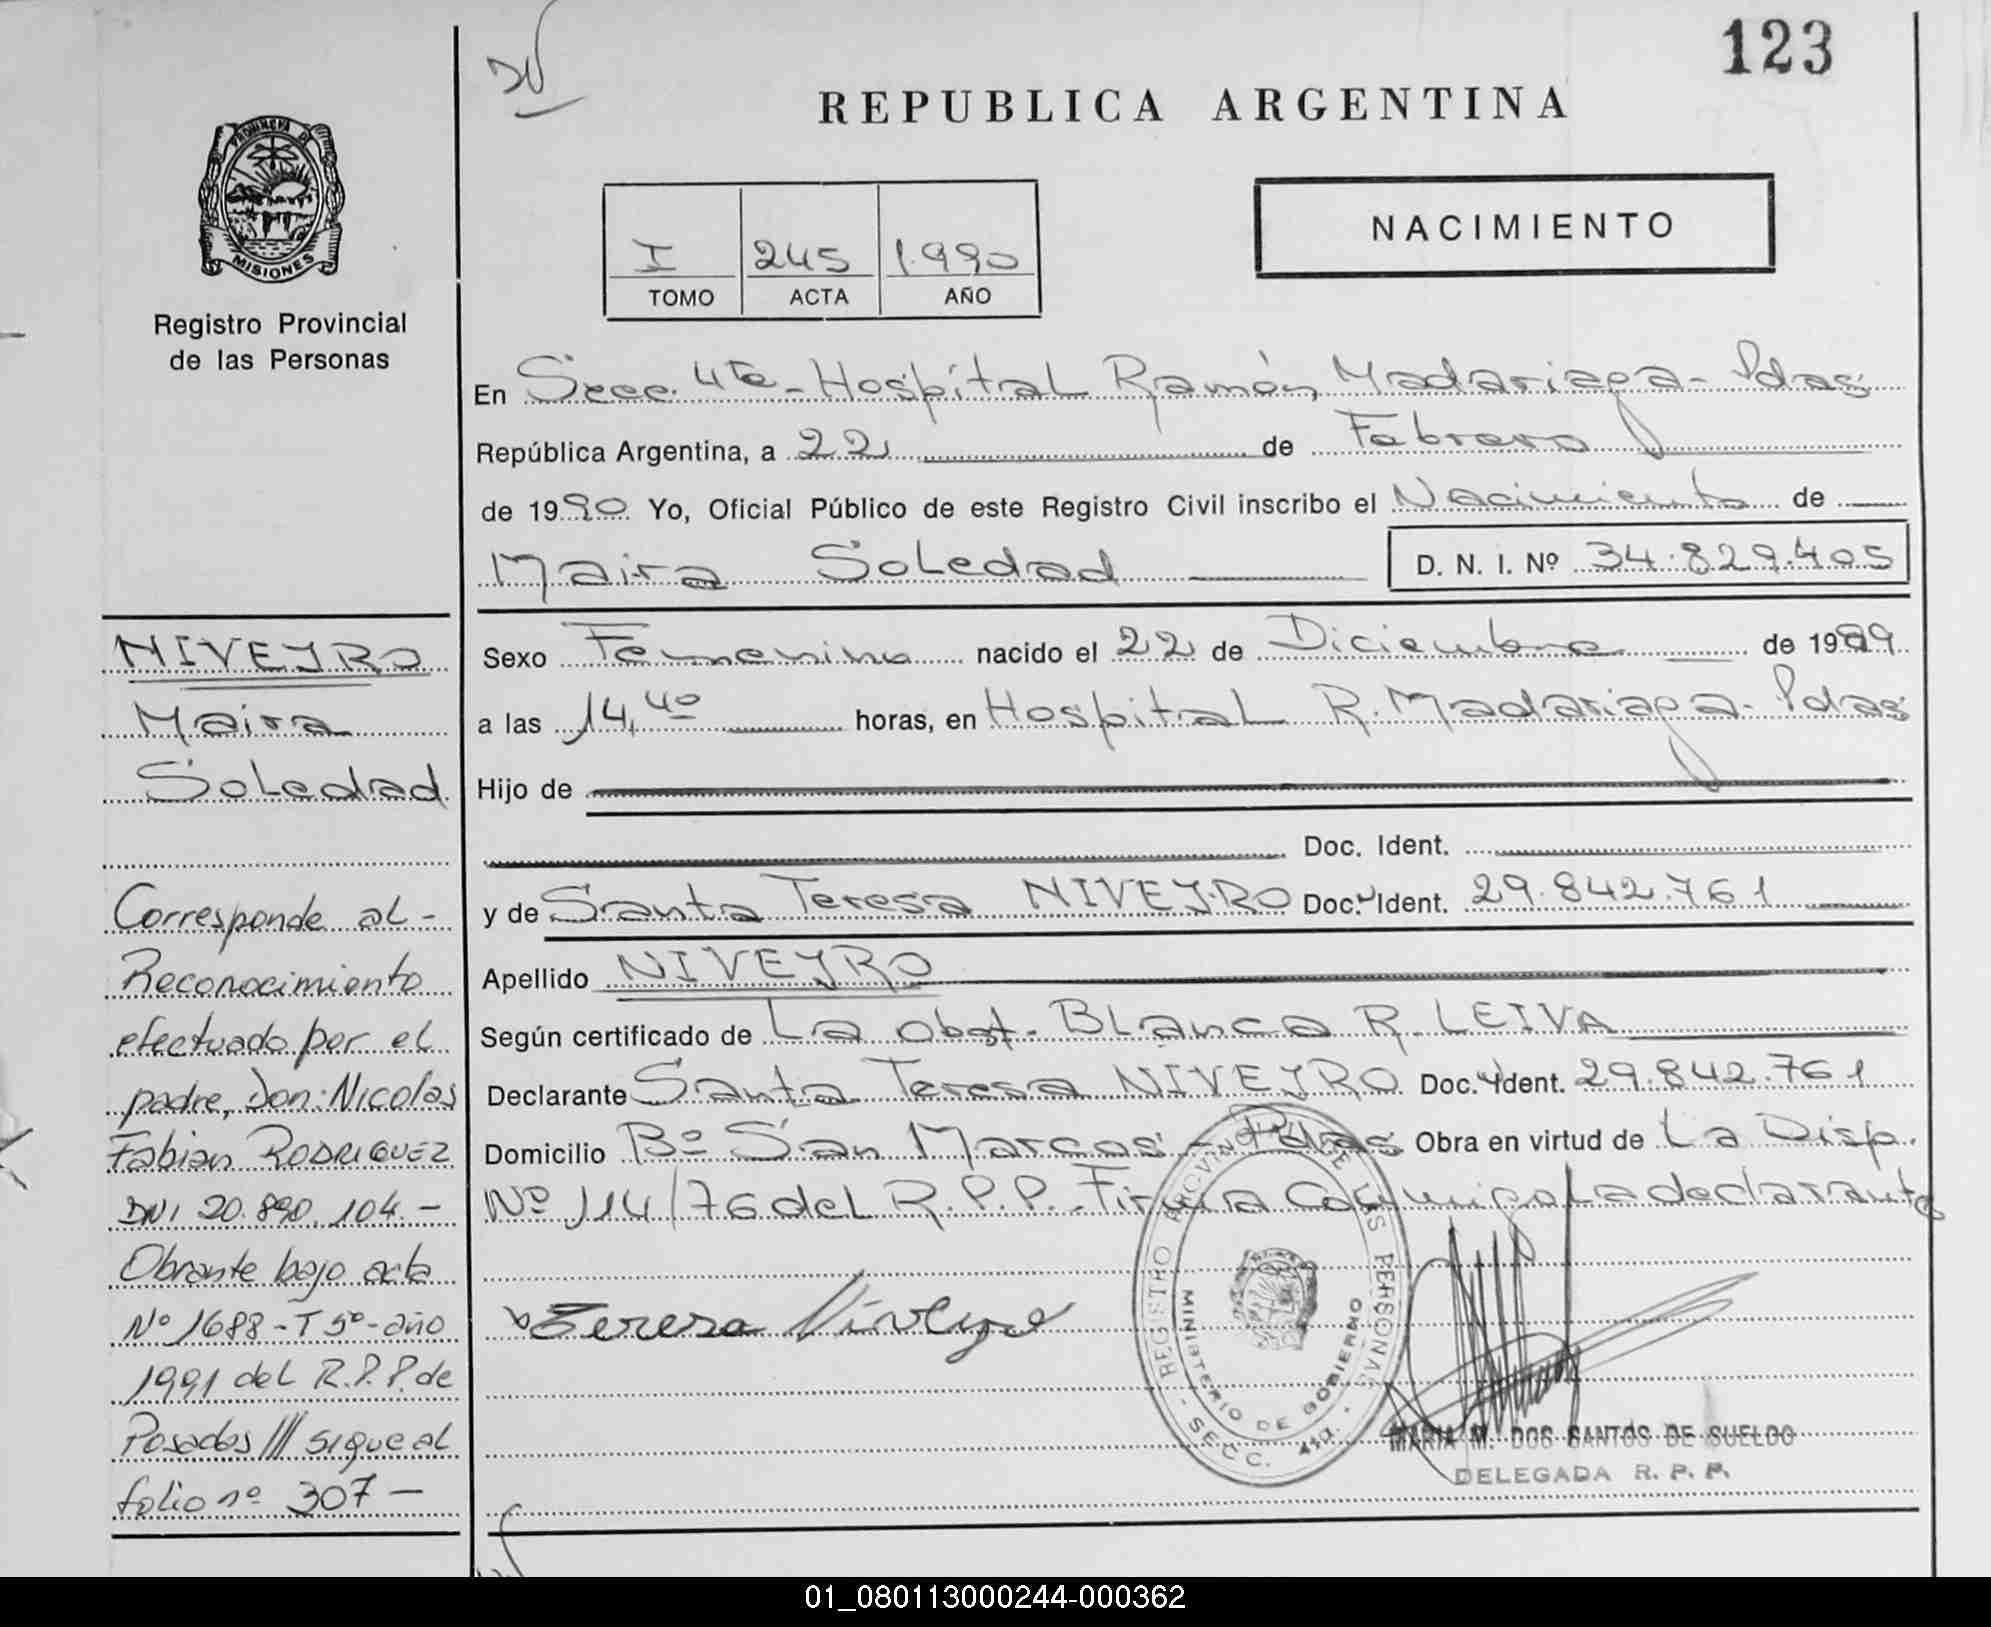 123
REPUBLICA ARGENTINA
PROVINCIA DE
MISIONES
Registro Provincial
de las Personas
NACIMIENTO
I 245 1.990
TOMO ACTA AÑO
En Secc. 4ta - Hospital Ramón Madariaga - Pdas
República Argentina, a 22 de Febrero
de 1990 Yo, Oficial Público de este Registro Civil inscribo el Nacimiento de
Maira Soledad D. N. I. Nº 34.829.405
Sexo Femenino nacido el 22 de Diciembre de 1989
a las 14,40 horas, en Hospital R. Madariaga - Pdas
Hijo de
Doc. Ident.
y de Santa Teresa NIVEYRO Doc. Ident. 29.842.761
Apellido NIVEYRO
Según certificado de La obst. Blanca R. LEIVA
Declarante Santa Teresa NIVEYRO Doc. Ident. 29.842.761
Domicilio Bº San Marcos - Pdas Obra en virtud de La Disp.
Nº 114/76 del R.P.P. Firma Conmigo La declarante
Teresa Niveyro
REGISTRO PROVINCIAL DE LAS PERSONAS
MINISTERIO DE GOBIERNO
- SECC. 4ta. -
MARIA M. DOS SANTOS DE SUELDO
DELEGADA R. P. P.
NIVEYRO
Maira
Soledad
Corresponde al -
Reconocimiento
efectuado por el
padre, Don: Nicolas
Fabian RODRIGUEZ
DNI 20.890.104. -
Obrante bajo acta
Nº 1688 - T 5º - año
1991 del R.P.P. de
Posadas /// sigue al
folio nº 307 -
01_080113000244-000362